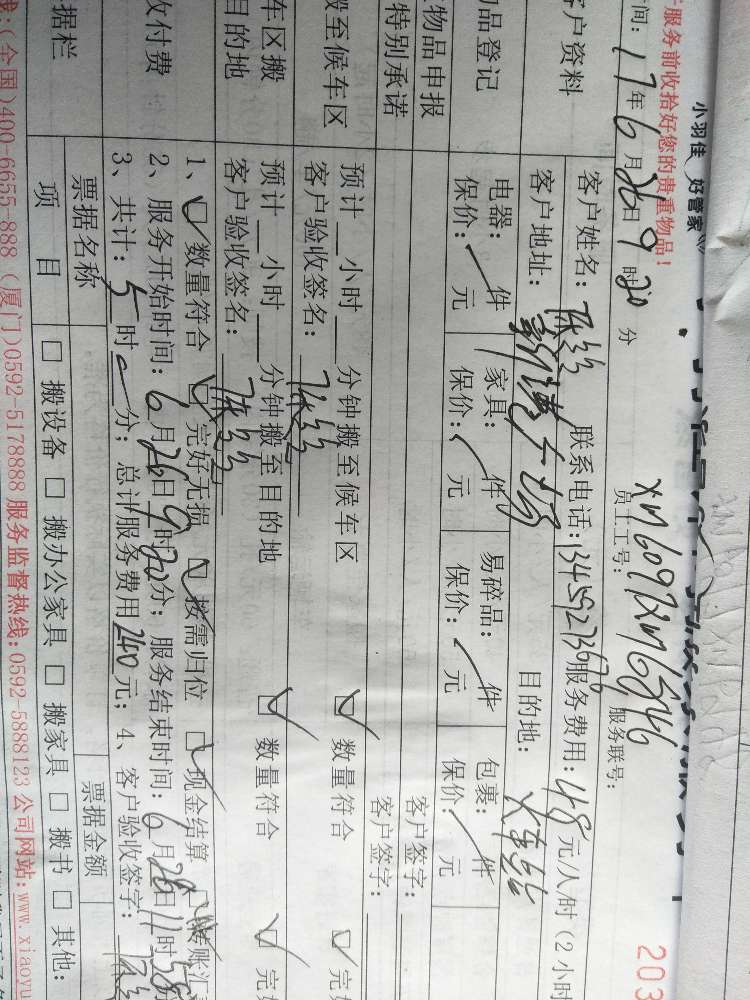 服务前收拾好您的贵重物品!
小羽佳 好管家
203
间: 17年6月26日9时20分
员工工号: 服务联号:
客户资料
客户姓名: 联系电话: 服务费用: 48元/人/时(2小时
客户地址: 目的地: 火车站
物品登记
电器: 件 家具: 件 易碎品: 件 包裹: 件
保价: 元 保价: 元 保价: 元 保价: 元
物品申报 客户签字:
特别承诺 客户签字:
搬至候车区
预计 小时 分钟搬至候车区 数量符合 完
客户验收签名:
车区搬目的地
预计 小时 分钟搬至目的地 数量符合 完
客户验收签名:
收付费
1、 数量符合 完好无损 按需归位 现金结算 转账汇
2、服务开始时间: 6月26日9时20分; 服务结束时间: 6月26日11时58
3、共计: 5时 分; 总计服务费用240元; 4、客户验收签字:
据栏
票据名称 票据金额
项 目 □ 搬设备 □ 搬办公家具 □ 搬家具 □ 搬书 □ 其他:
(全国)400-6655-888 (厦门)0592-5178888 服务监督热线:0592-5888123 公司网站:www.xiaoyu